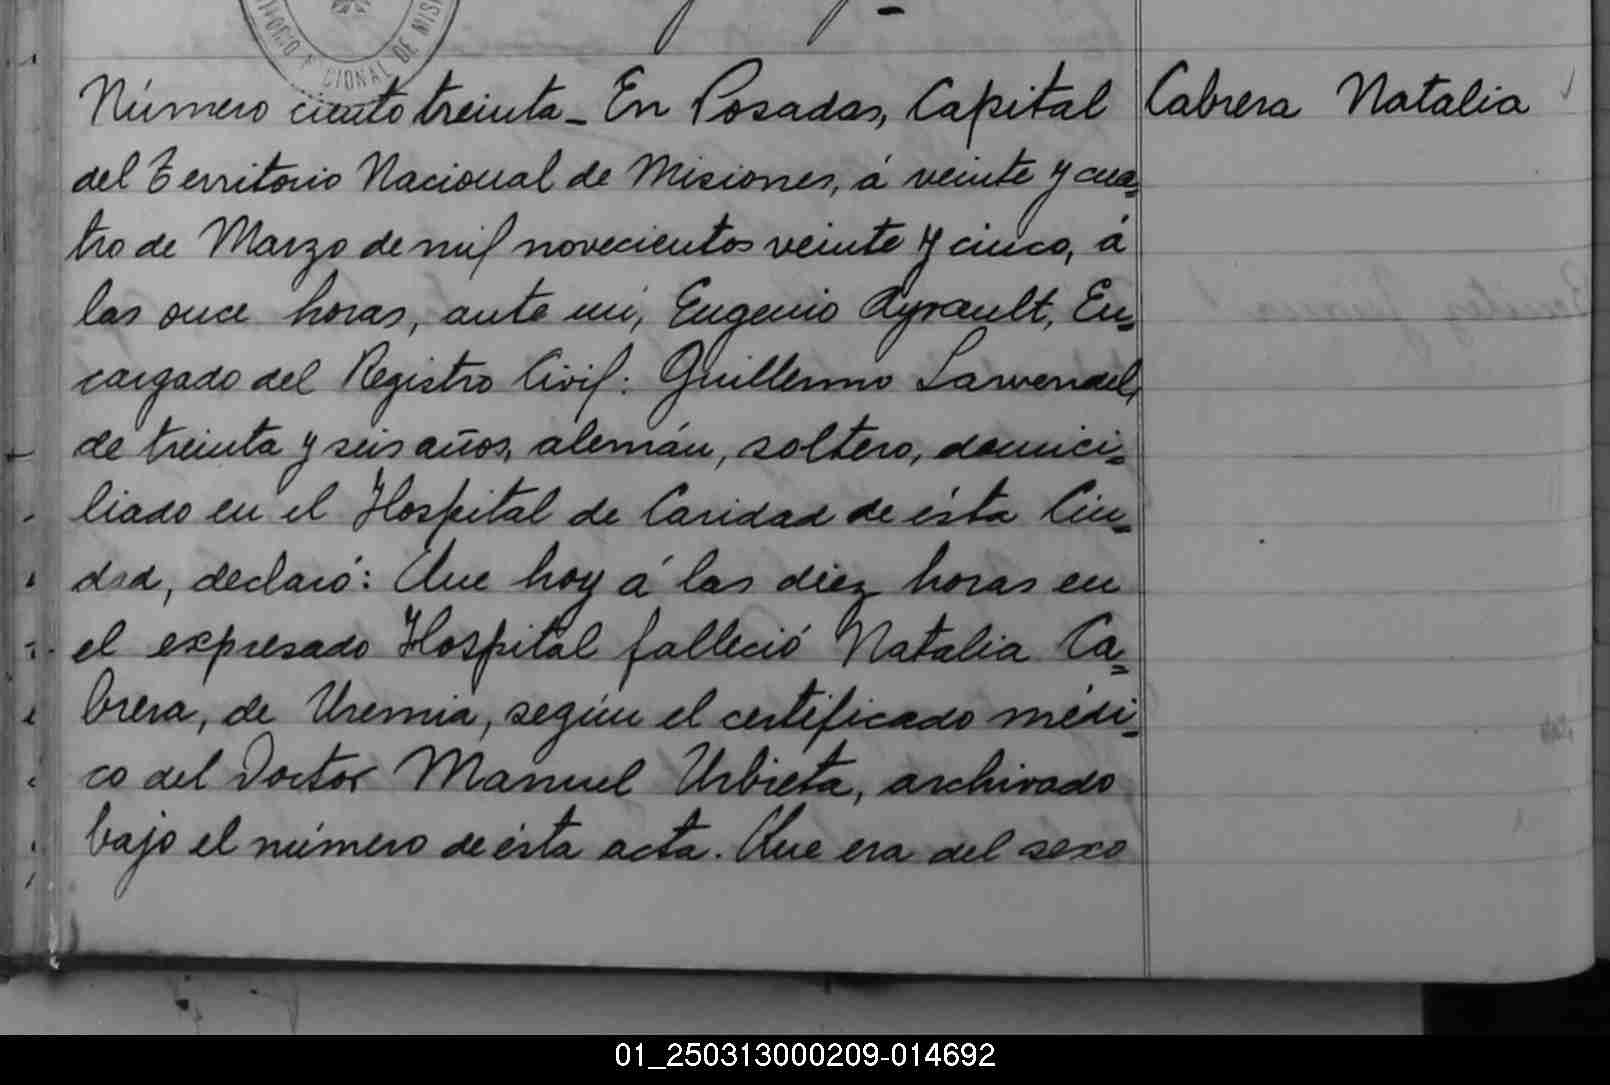 Número ciento treinta - En Posadas, Capital
Cabrera Natalia
del Territorio Nacional de Misiones, á veinte y cua=
tro de Marzo de mil novecientos veinte y cinco, á
las once horas, ante mi, Eugenio Ayrault, En=
cargado del Registro Civil: Guillermo
de treinta y seis años, alemán, soltero, domici=
liado en el Hospital de Caridad de ésta Ciu=
dad, declaró: Que hoy á las diez horas en
el expresado Hospital falleció Natalia Ca=
brera, de Uremia, según el certificado médi=
co del Doctor Manuel Urbieta, archivado
bajo el número de ésta acta. Que era del sexo
01_250313000209-014692